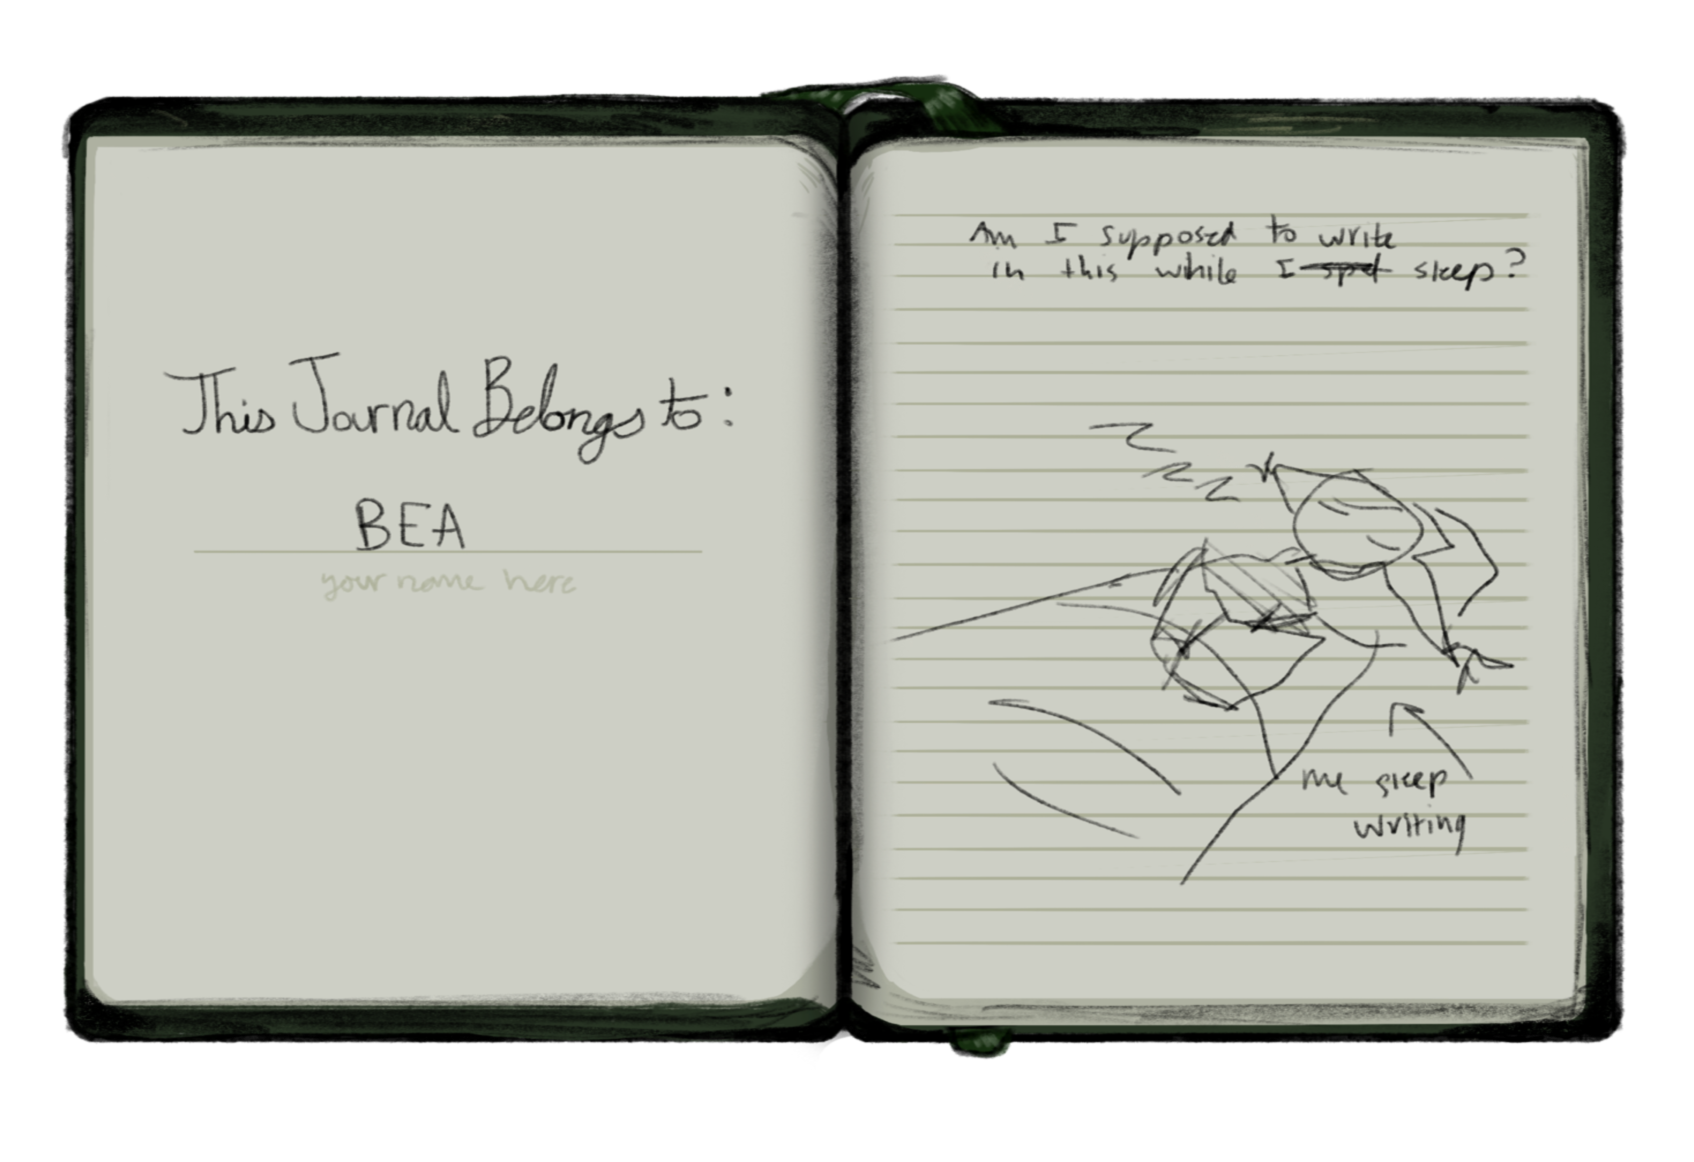 This Journal Belongs to:
BEA
your name here
Am I supposed to write
in this while I sleep?
zzz
me sleep
writing